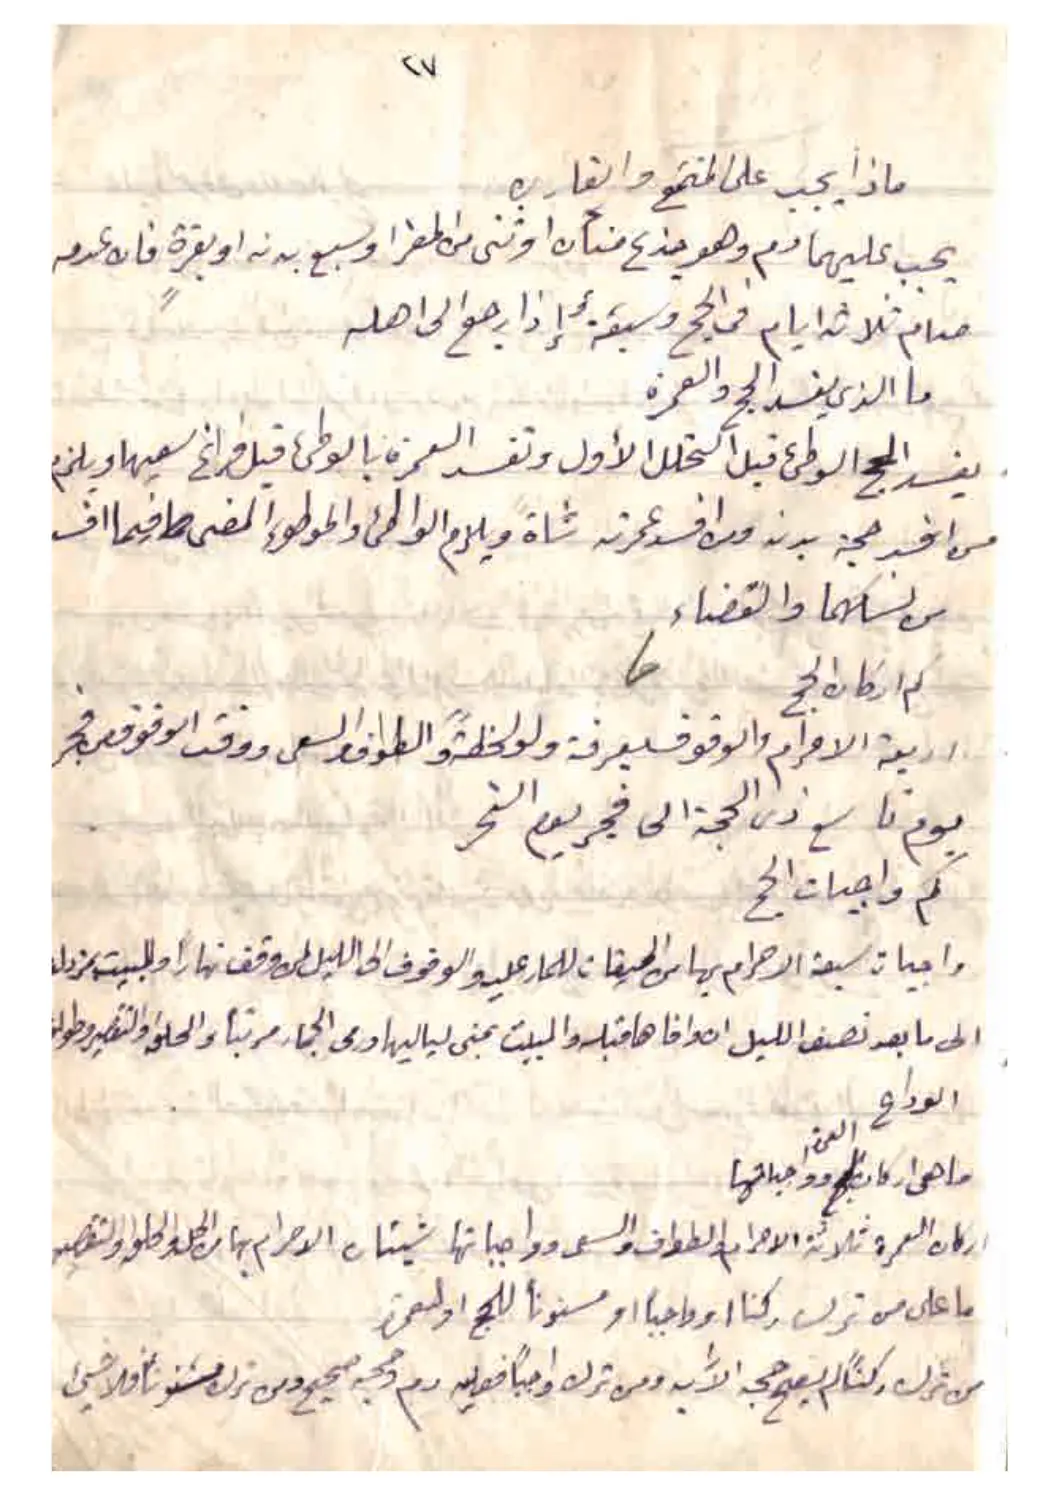 ٢٧
ماذا يجب على المتمتع والقارن
يجب عليهما دم وهو جذع ضئان او ثنى من المعز او سبع بدنه او بقرة فان عدمه
صام ثلاثه ايام في الحج وسبعة إذا رجع الى اهله
ما الذي يفسد الحج والعمرة
يفسد الحج الوطئ قبل التحلل الأول وتفسد العمرة بالوطئ قبل فراغ سعيها ويلزم
من افسد حجة بدنه ومن افسد عمرته شاة ويلزم الواطئ والموطوء المضى فيما افسد
من نسكهما والقضاء
كم اركان الحج
اربعة الاحرام والوقوف بعرفة ولو لحظة والطواف والسعى ووقت الوقوف من فجر
يوم تاسع ذى الحجة الى فجر يوم النحر
كم واجبات الحج
واجبات سبعة الاحرام بها من الميقات للمار عليه والوقوف الى الليل لمن وقف نهاراً والمبيت بمزدلفة
الى ما بعد نصف الليل ان وافاها قبله والمبيت بمنى لياليها ورمى الجمار مرتبأ والحلق او التقصير وطواف
الوداع
ما هى اركان العمرة وواجباتها
اركان العمرة ثلاثة الاحرام والطواف والسعى وواجباتها شيئان الاحرام بها من الحل والحلق او التقصير
ما على من ترك ركنا او واجبا او مسنونأ للحج او لعمرة
من ترك ركنًا لم يصح حجه الا به ومن ترك واجباً فعليه دم وحجه صحيح ومن ترك مسنونأ فلا شئ